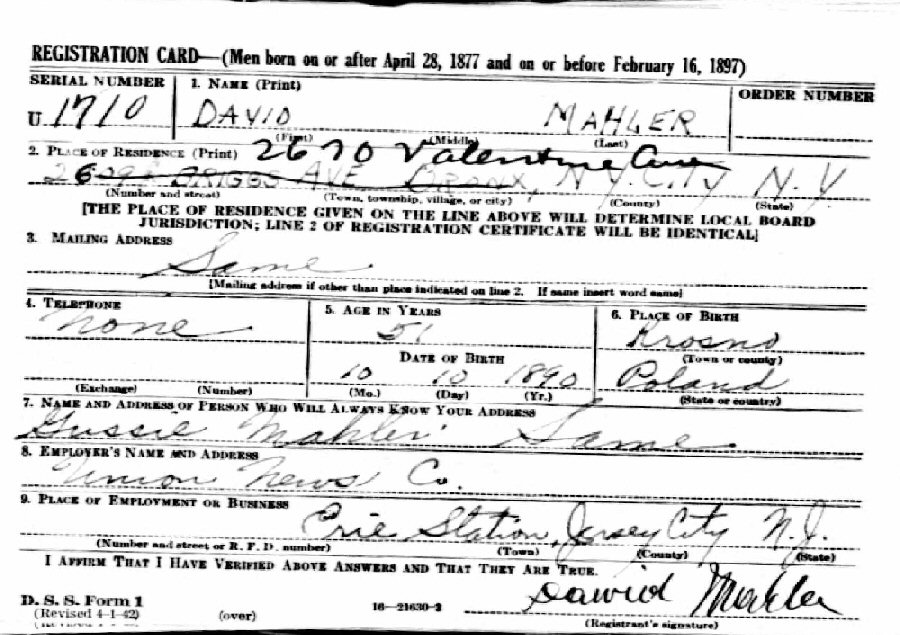 REGISTRATION CARD—(Men born on or after April 28, 1877 and on or before February 16, 1897)
SERIAL NUMBER 1. NAME (Print) ORDER NUMBER
U 1710 DAVID MAHLER
(First) (Middle) (Last)
2. PLACE OF RESIDENCE (Print) 2670 Valentine Ave
BRIGGS AVE BRONX, N.Y. CITY N.Y
(Number and street) (Town, township, village, or city) (County) (State)
[THE PLACE OF RESIDENCE GIVEN ON THE LINE ABOVE WILL DETERMINE LOCAL BOARD
JURISDICTION; LINE 2 OF REGISTRATION CERTIFICATE WILL BE IDENTICAL]
3. MAILING ADDRESS
Same
[Mailing address if other than place indicated on line 2. If same insert word same]
4. TELEPHONE 5. AGE IN YEARS 6. PLACE OF BIRTH
None 51 Krosno
DATE OF BIRTH (Town or county)
10 10 1890 Poland
(Exchange) (Number) (Mo.) (Day) (Yr.) (State or country)
7. NAME AND ADDRESS OF PERSON WHO WILL ALWAYS KNOW YOUR ADDRESS
Gussie Mahler Same
8. EMPLOYER'S NAME AND ADDRESS
Union News Co.
9. PLACE OF EMPLOYMENT OR BUSINESS
Erie Station, Jersey City N.J.
(Number and street or R. F. D. number) (Town) (County) (State)
I AFFIRM THAT I HAVE VERIFIED ABOVE ANSWERS AND THAT THEY ARE TRUE.
D. S. S. Form 1 Dawid Mahler
(Revised 4-1-42) (over) 16—21630-2 (Registrant's signature)